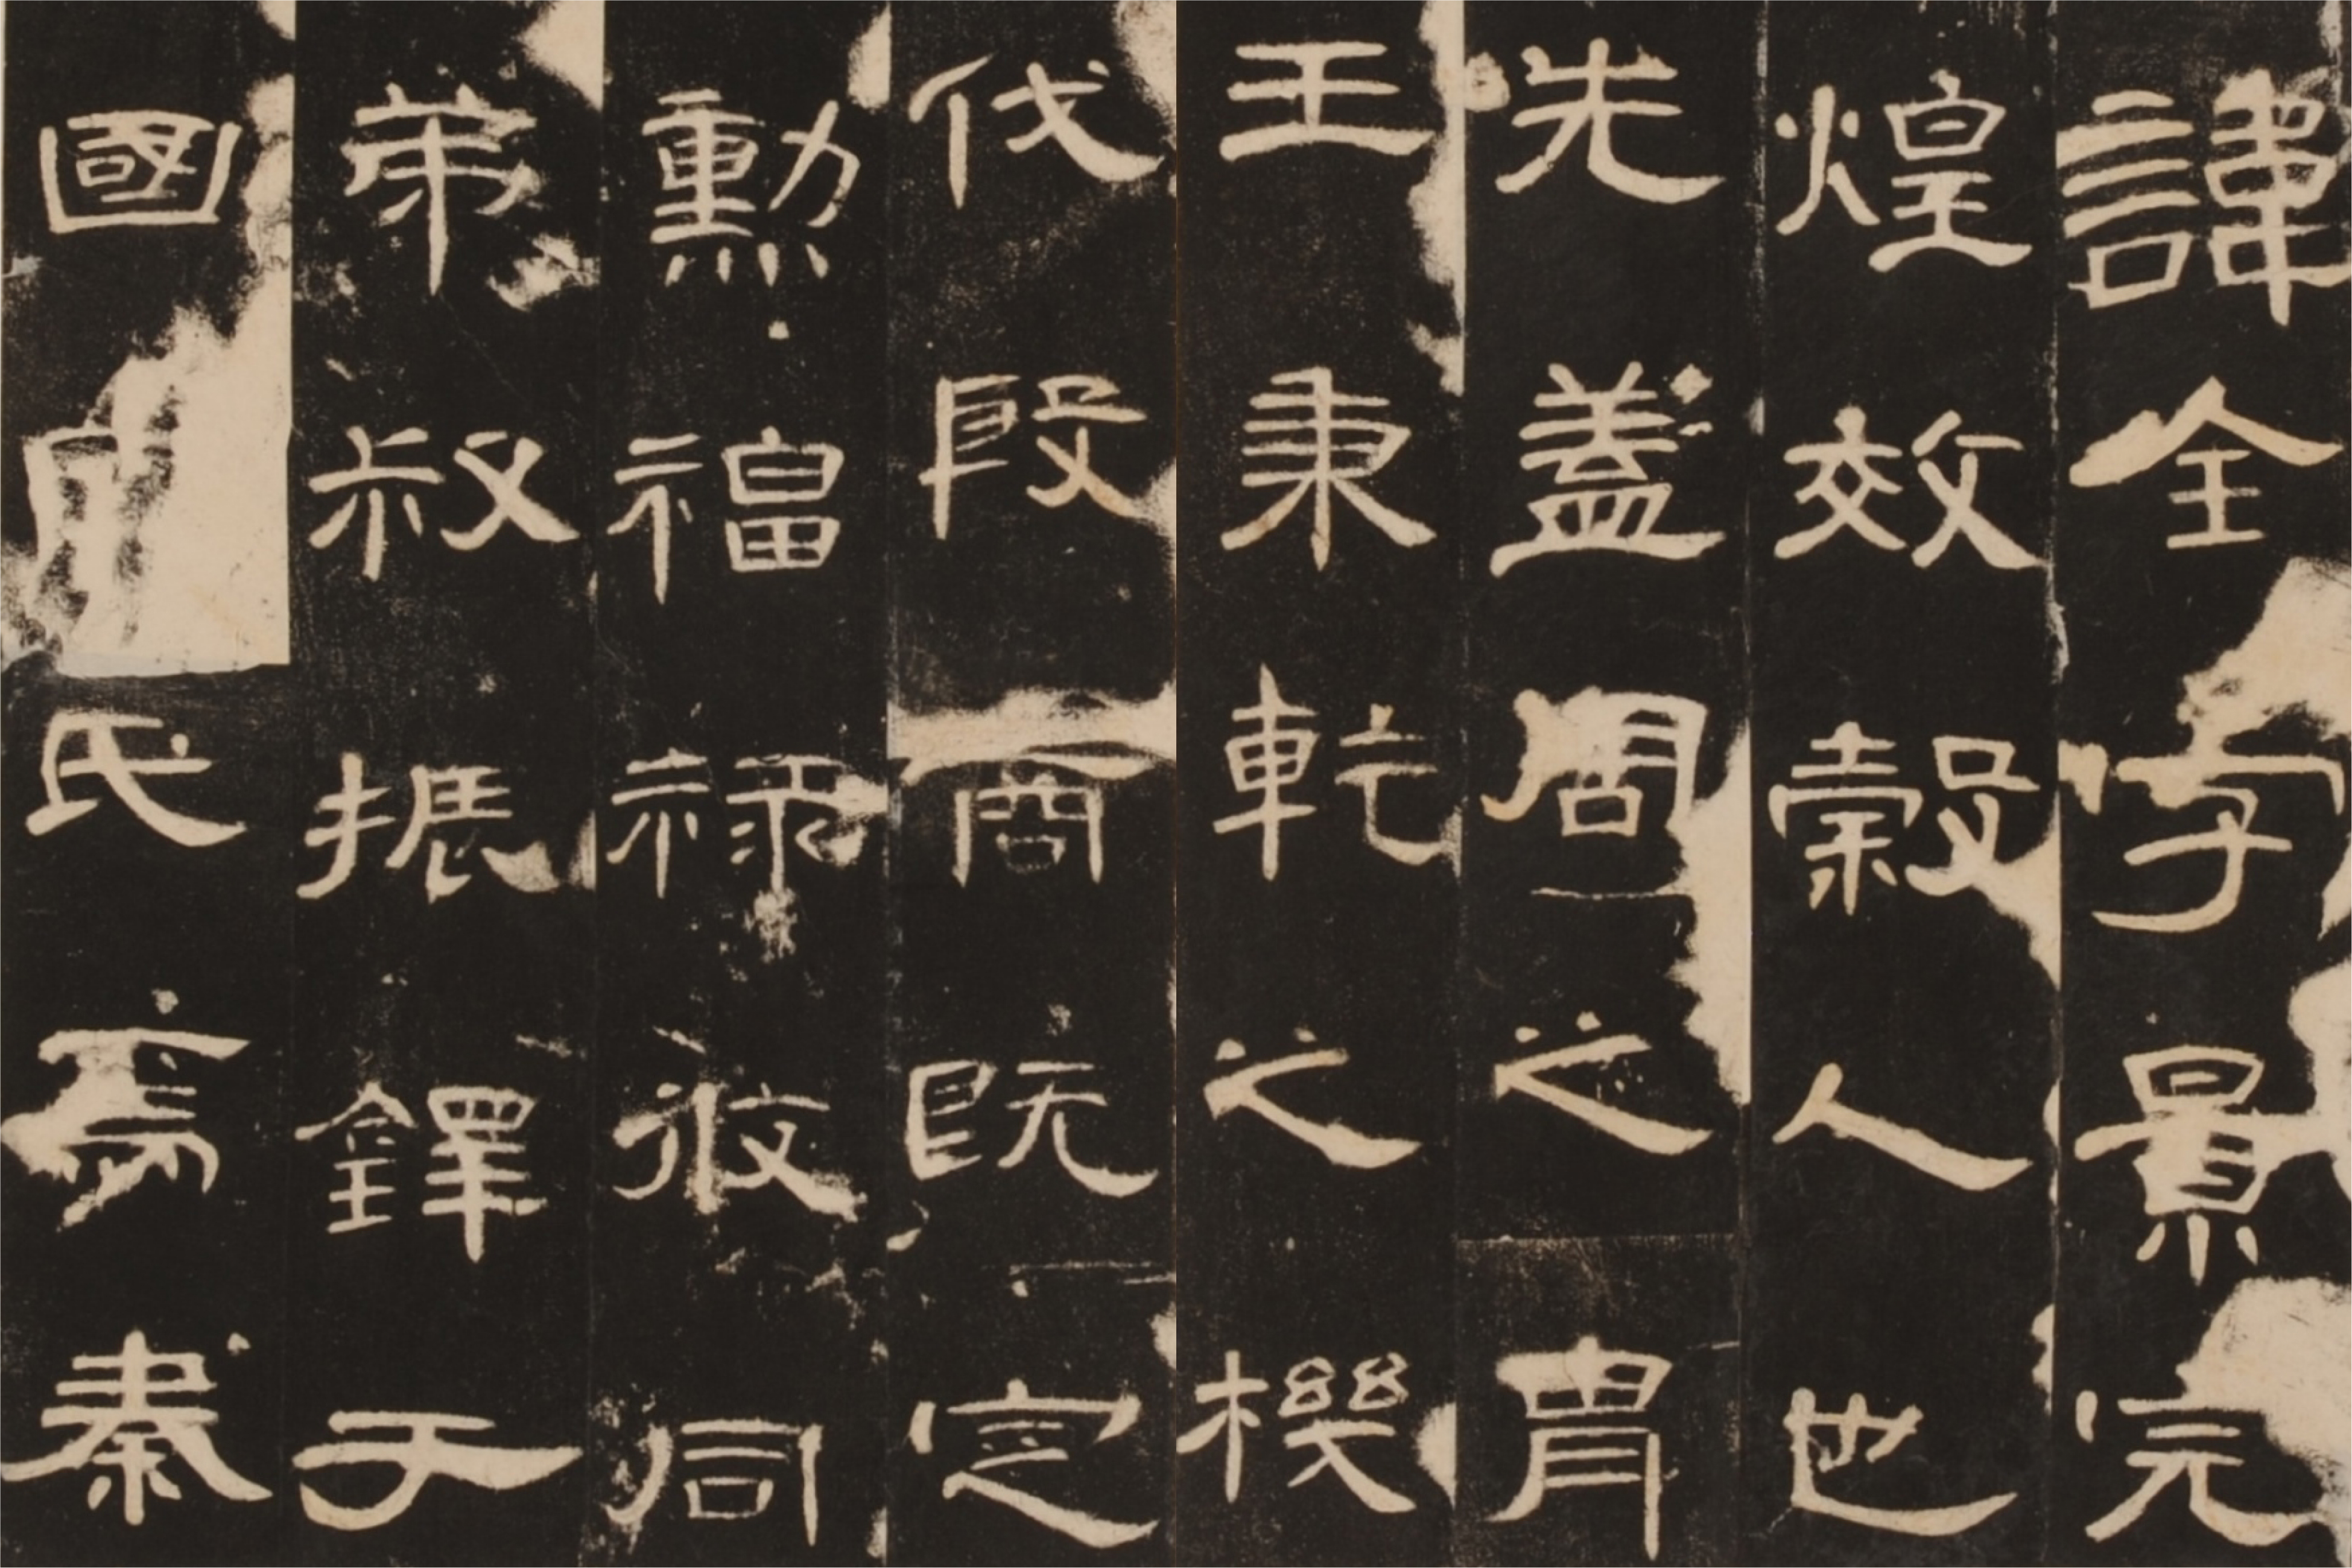 諱全字景完
煌效穀人也
先蓋周之胄
王秉乾之機
伐殷商既定
勳福祿攸同
弟叔振鐸于
國因氏焉秦